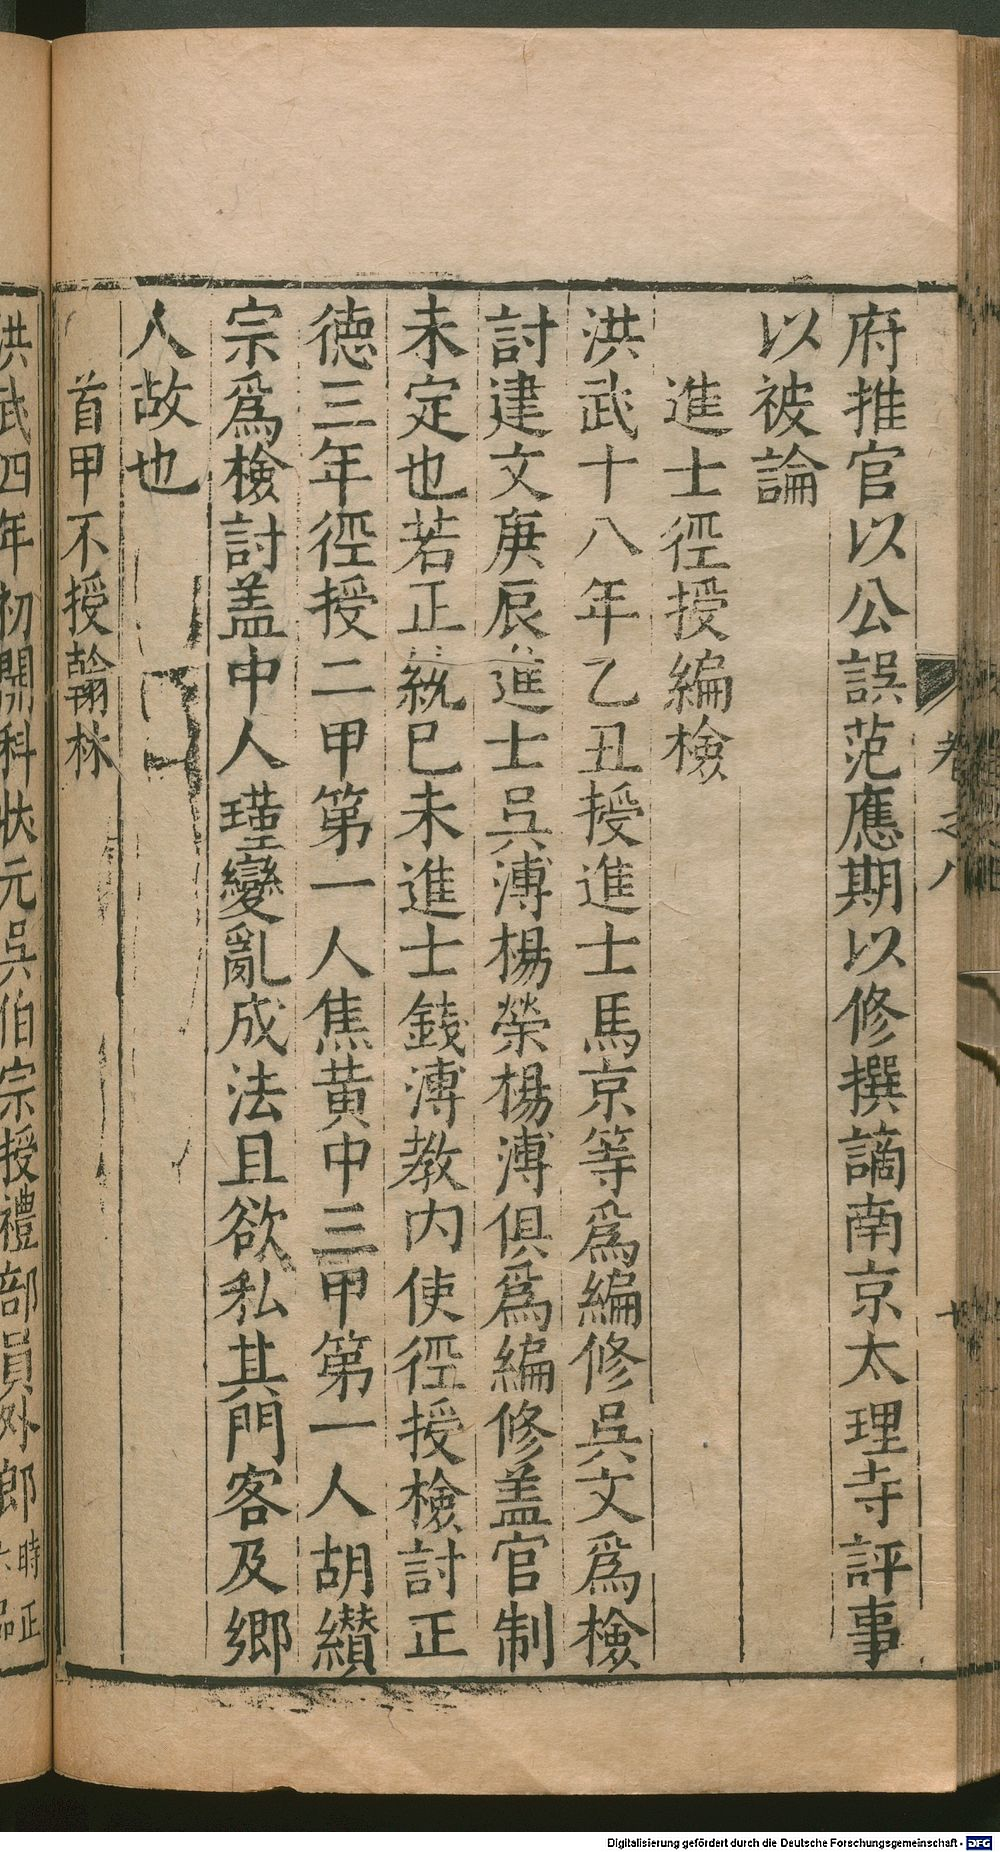 卷之八 十
府推官以公誤范應期以修撰謫南京太理寺評事
以被論
進士徑授編檢
洪武十八年乙丑授進士馬京等爲編修吳文爲檢
討建文庚辰進士吳溥楊榮楊溥俱爲編修盖官制
未定也若正統己未進士錢溥教內使徑授檢討正
德三年徑授二甲第一人焦黃中三甲第一人胡纘
宗爲檢討盖中人瑾變亂成法且欲私其門客及鄉
人故也
首甲不授翰林
洪武四年初開科狀元吳伯宗授禮部員外郎時正六品
Digitalisierung gefördert durch die Deutsche Forschungsgemeinschaft - DFG